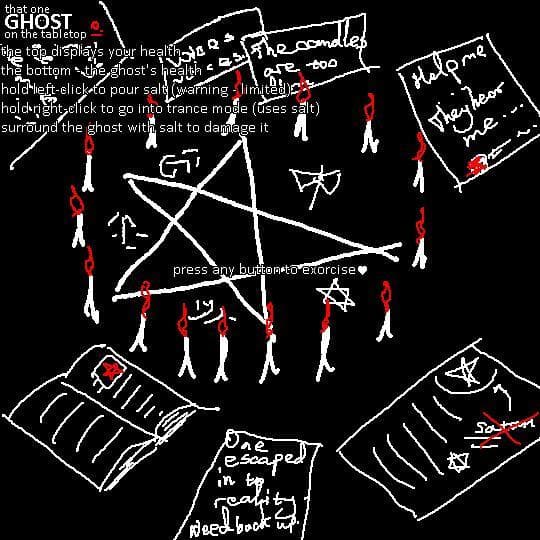 that one
GHOST
on the tabletop
the top displays your health
the bottom - the ghost's health
hold left-click to pour salt (warning - limited)
hold right-click to go into trance mode (uses salt)
surround the ghost with salt to damage it
The candles
are too
Help me
They hear
me...
press any button to exorcise♥
Satan
One
escaped
in to
reality.
Need back up.